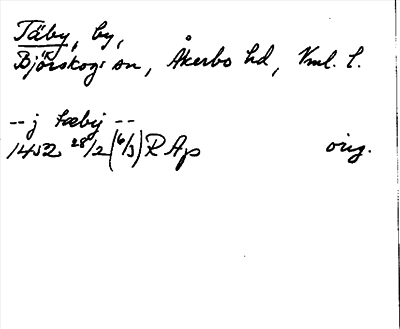 Täby, by,
Björskogs sn, Åkerbo hd, Vml. l.
-- j tæby --
1452 28/2 (6/3) RAp orig.